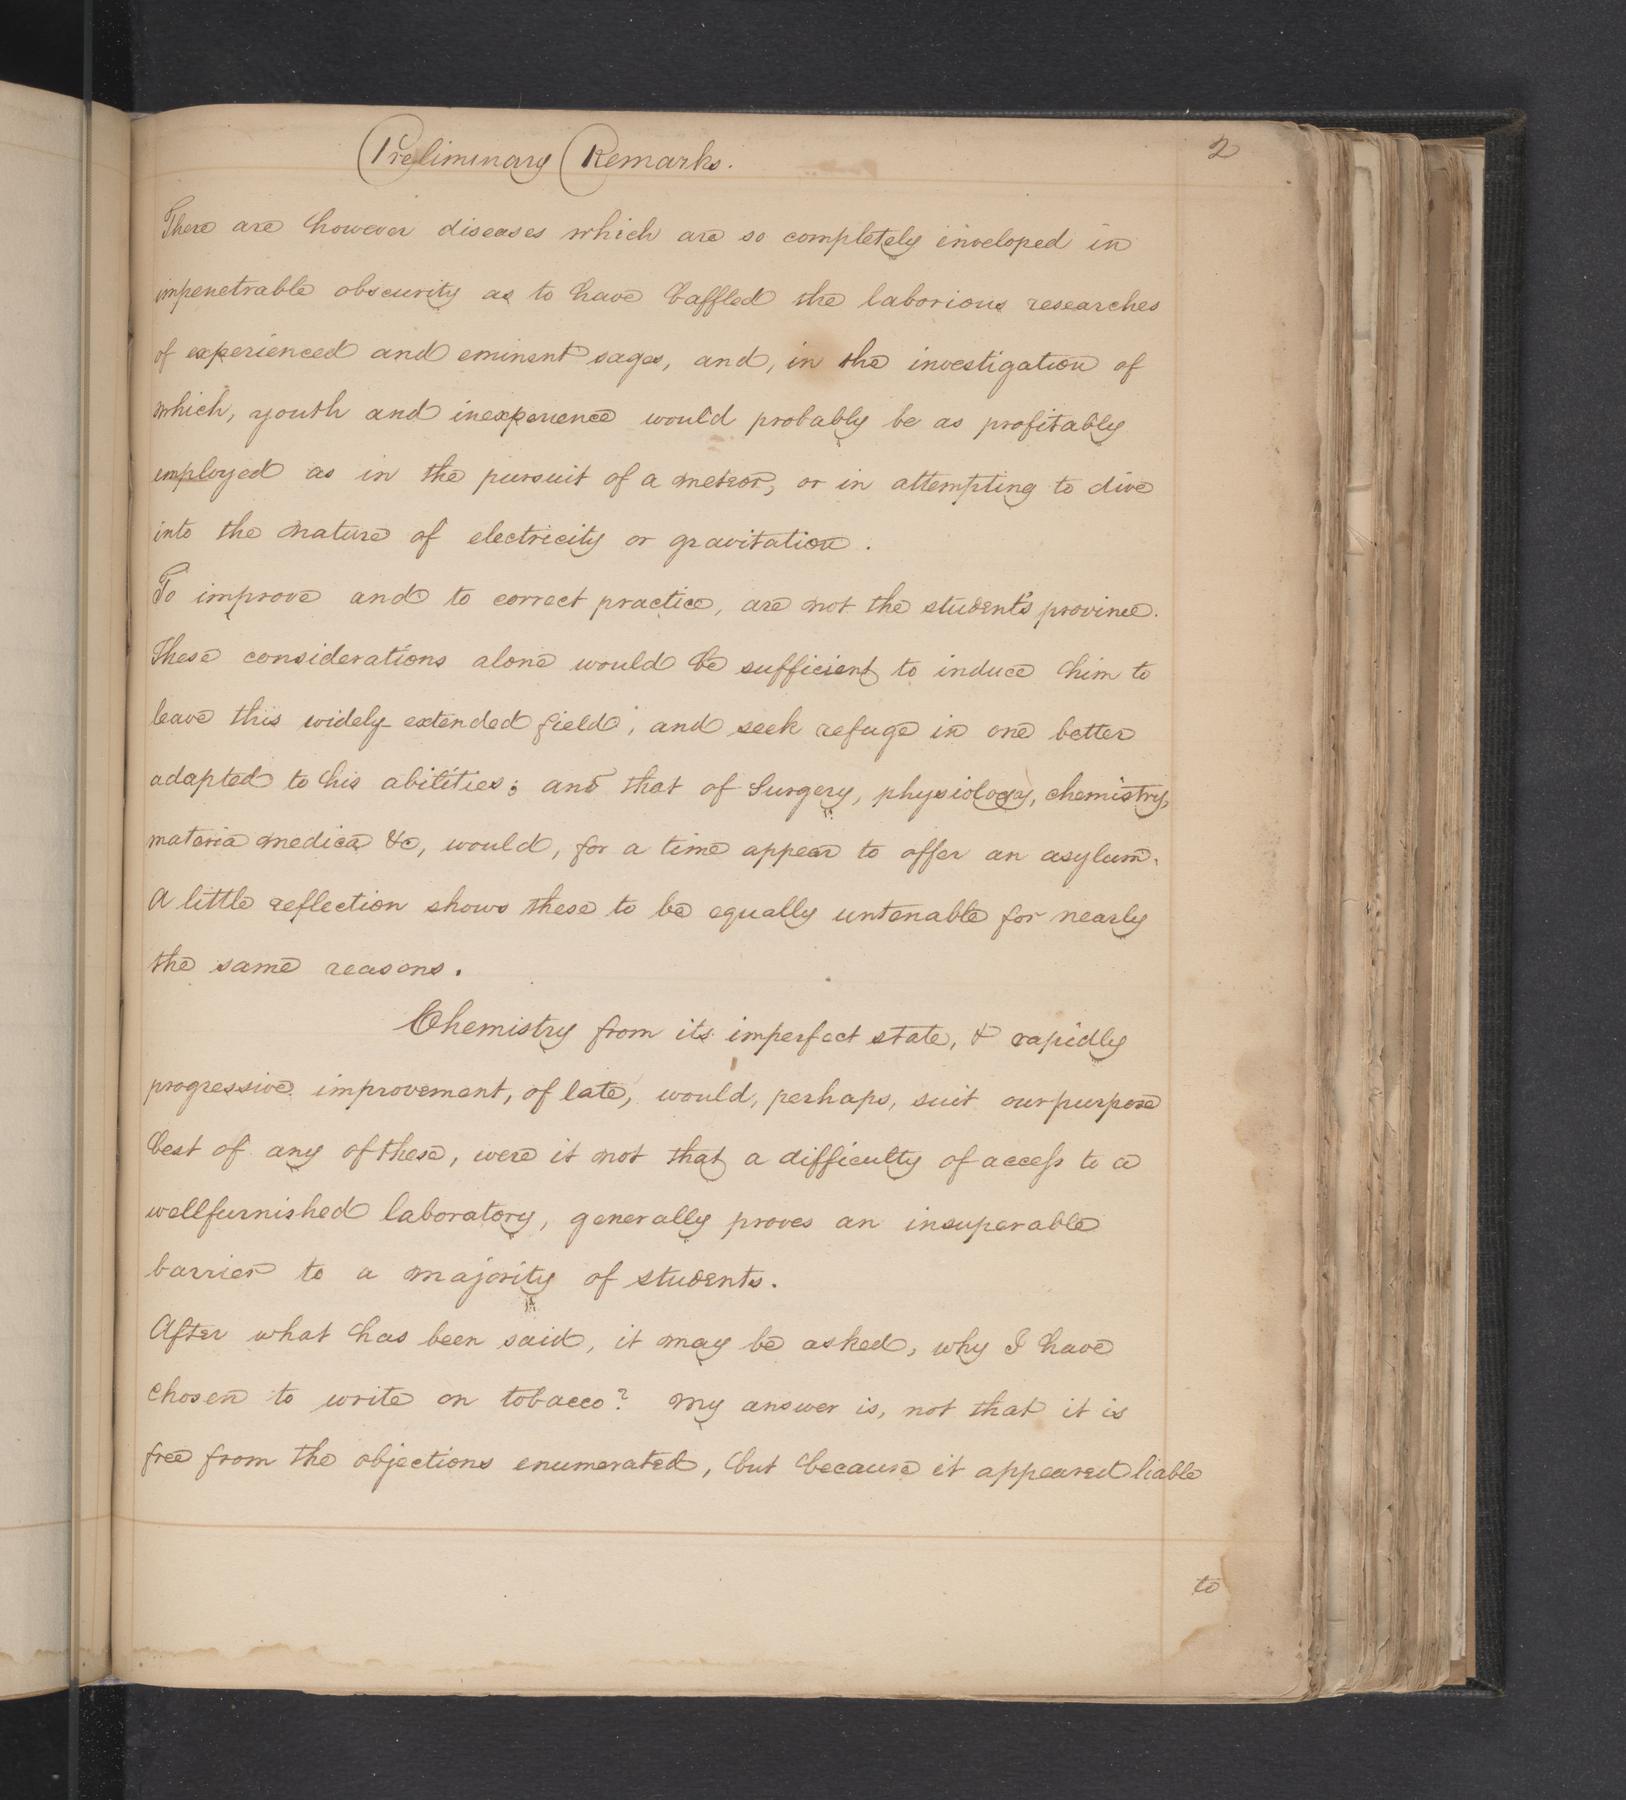 Preliminary Remarks.
2
There are however diseases which are so completely inveloped in
impenetrable obscurity as to have baffled the laborious researches
of experienced and eminent sages, and, in the investigation of
which, youth and inexperience would probably be as profitably
employed as in the pursuit of a meteor, or in attempting to dive
into the nature of electricity or gravitation.
To improve and to correct practice, are not the student's province.
These considerations alone would be sufficient to induce him to
leave this widely extended field; and seek refuge in one better
adapted to his abilities; and that of Surgery, physiology, chemistry,
materia medica &c, would, for a time appear to offer an asylum.
A little reflection shows these to be equally untenable for nearly
the same reasons.
Chemistry from its imperfect state, & rapidly
progressive improvement, of late, would, perhaps, suit our purpose
best of any of these, were it not that a difficulty of access to a
wellfurnished laboratory, generally proves an insuperable
barrier to a majority of students.
After what has been said, it may be asked, why I have
chosen to write on tobacco? My answer is, not that it is
free from the objections enumerated, but because it appeared liable
to